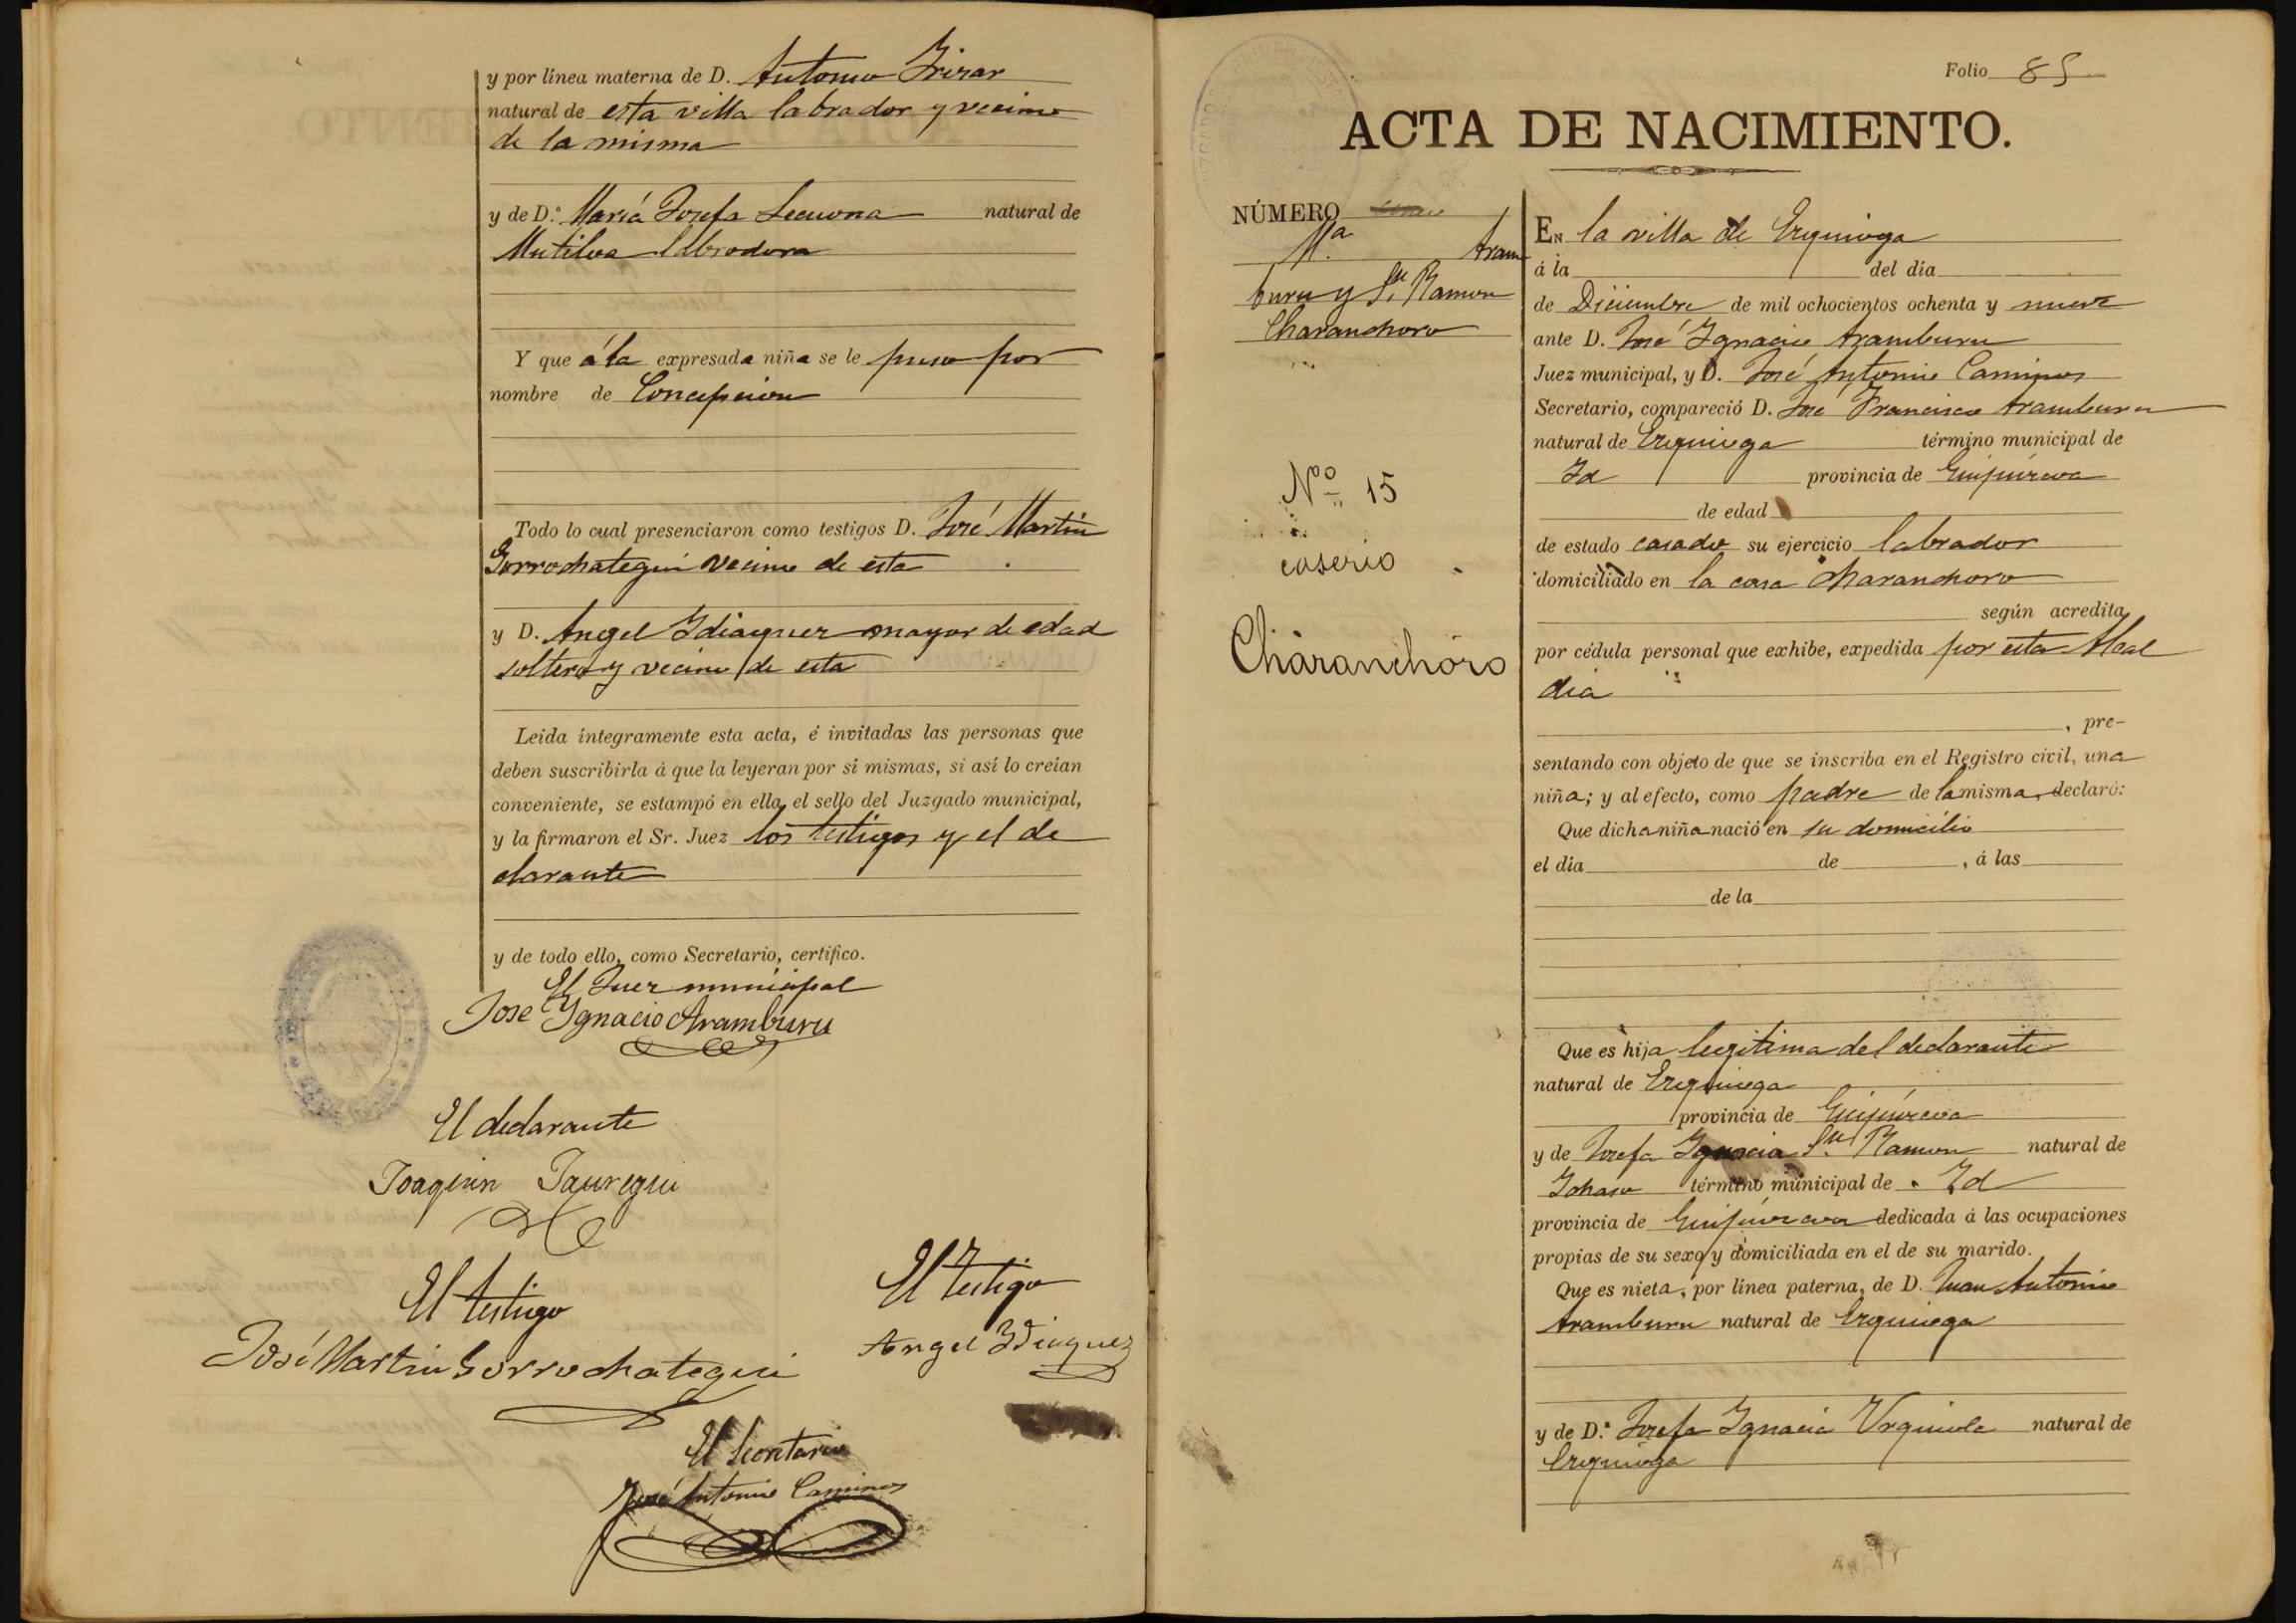 y por línea materna de D. Antonio Irizar
natural de esta villa labrador y vecino
de la misma
y de D.ª María Josefa Lecuona natural de
Mutiloa labradora
Y que á la expresada niña se le puso por
nombre de Concepcion
Todo lo cual presenciaron como testigos D. José Martin
Gorrochategui vecino de esta
y D. Angel Ydiaquez mayor de edad
soltero y vecino de esta
Leida íntegramente esta acta, é invitadas las personas que
deben suscribirla á que la leyeran por sí mismas, si así lo creían
conveniente, se estampó en ella el sello del Juzgado municipal,
y la firmaron el Sr. Juez los testigos y el de
clarante
y de todo ello, como Secretario, certifico.
El Juez municipal
Jose Ygnacio Aramburu
El declarante
Joaquin Jauregui
El testigo
José Martin Gorrochategui
El testigo
Angel Ydiaquez
El Secretario
José Antonio Caminos
Folio 85
ACTA DE NACIMIENTO.
NÚMERO
M.ª Aram
buru y Sn. Ramon
Charanchoro
Nº 15
caserio
Charanchoro
EN la villa de Ezquioga
á la del día
de Diciembre de mil ochocientos ochenta y nueve
ante D. José Ygnacio Aramburu
Juez municipal, y D. José Antonio Caminos
Secretario, compareció D. José Francisco Aramburu
natural de Ezquioga término municipal de
Id provincia de Guipúzcoa
de edad
de estado casado su ejercicio labrador
domiciliado en la casa Charanchoro
según acredita
por cédula personal que exhibe, expedida por esta Alcal
dia
, pre-
sentando con objeto de que se inscriba en el Registro civil, una
niña; y al efecto, como padre de la misma, declaró:
Que dicha niña nació en su domicilio
el día de , á las
de la
Que es hija legitima del declarante
natural de Ezquioga
provincia de Guipúzcoa
y de Josefa Ygnacia Sn. Ramon natural de
Ichaso término municipal de Id
provincia de Guipúzcoa dedicada á las ocupaciones
propias de su sexo y domiciliada en el de su marido.
Que es nieta, por línea paterna, de D. Juan Antonio
Aramburu natural de Ezquioga
y de D.ª Josefa Ygnacia Urquiola natural de
Ezquioga